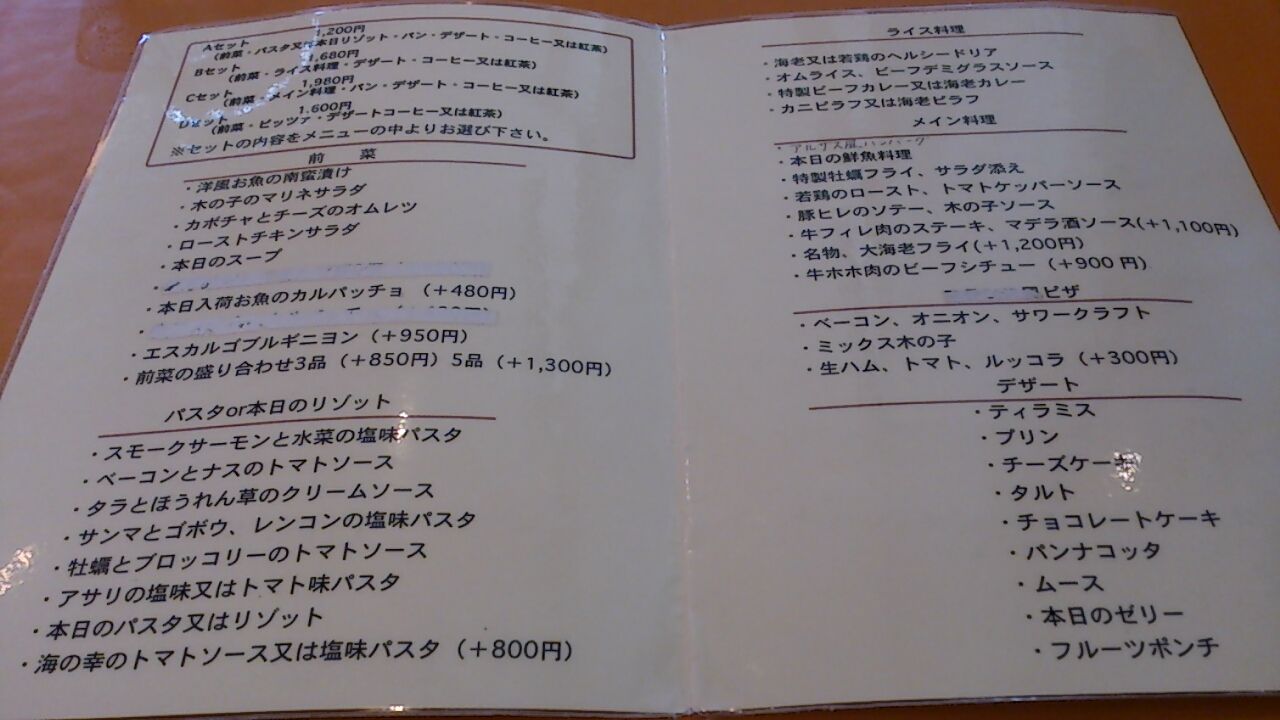 Aセット 1,200円
(前菜・パスタ又は本日リゾット・パン・デザート・コーヒー又は紅茶)
Bセット 1,680円
(前菜・ライス料理・デザート・コーヒー又は紅茶)
Cセット 1,980円
(前菜・メイン料理・パン・デザート・コーヒー又は紅茶)
Dセット 1,600円
(前菜・ピッツァ・デザートコーヒー又は紅茶)
※セットの内容をメニューの中よりお選び下さい。
前 菜
・洋風お魚の南蛮漬け
・木の子のマリネサラダ
・カボチャとチーズのオムレツ
・ローストチキンサラダ
・本日のスープ
・本日入荷お魚のカルパッチョ (+480円)
・エスカルゴブルギニヨン (+950円)
・前菜の盛り合わせ3品 (+850円) 5品 (+1,300円)
パスタor本日のリゾット
・スモークサーモンと水菜の塩味パスタ
・ベーコンとナスのトマトソース
・タラとほうれん草のクリームソース
・サンマとゴボウ、レンコンの塩味パスタ
・牡蠣とブロッコリーのトマトソース
・アサリの塩味又はトマト味パスタ
・本日のパスタ又はリゾット
・海の幸のトマトソース又は塩味パスタ (+800円)
ライス料理
・海老又は若鶏のヘルシードリア
・オムライス、ビーフデミグラスソース
・特製ビーフカレー又は海老カレー
・カニピラフ又は海老ピラフ
メイン料理
・アルザス風ハンバーグ
・本日の鮮魚料理
・特製牡蠣フライ、サラダ添え
・若鶏のロースト、トマトケッパーソース
・豚ヒレのソテー、木の子ソース
・牛フィレ肉のステーキ、マデラ酒ソース(+1,100円)
・名物、大海老フライ(+1,200円)
・牛ホホ肉のビーフシチュー (+900円)
ピザ
・ベーコン、オニオン、サワークラフト
・ミックス木の子
・生ハム、トマト、ルッコラ (+300円)
デザート
・ティラミス
・プリン
・チーズケーキ
・タルト
・チョコレートケーキ
・パンナコッタ
・ムース
・本日のゼリー
・フルーツポンチ